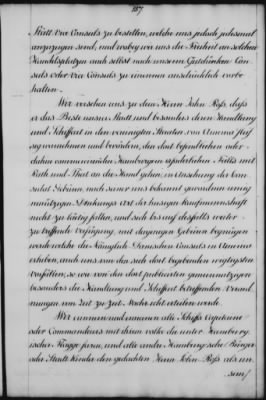 187.
statt Vice Consuls zu bestellen, welche uns jedoch jedesmal
anzuzeigen sind, und wobey wir uns die Freiheit an solchen
Handelsplätzen auch selbst nach unserm Gutdünken Con-
suls oder Vice Consuls zu ernennen ausdrücklich vorbe-
halten.
Wir versehen uns zu dem Herrn John Ross, daß
er das Beste unsrer Stadt und besonders deren Handlung
und Schiffart in den vereinigten Staaten von America fleis-
sig warnehmen und befördern, den dort befindlichen oder
dahin commercirenden Hamburgern erforderlichen Falls mit
Rath und That an die Hand gehen, in Ansehung der Con-
sulat Gebüren, nach seiner uns bekannt gewordenen uneig-
nützigen Denkungs Art der hiesigen Kaufmannschaft
nicht zu lästig fallen, und sich bis auf desfalls weiter
zu treffende Verfügung, mit denjenigen Gebüren begnügen
werde welche die Königlich Dänischen Consuls in America
erheben, auch uns von den sich dort begebenden wichtigsten
Vorfällen, so wie von den dort publicirten
besonders die Handlung und Schiffart betreffenden Verord-
nungen von Zeit zu Zeit Nachricht erteilen werde.
Wir ernennen und ermahnen alle Schiffs Capitains
oder Commandeurs mit ihrem Volke die unter Hamburg-
ischer Flagge faren, und alle andre Hamburgische Bürger
oder Stadt Kinder den gedachten Herrn John Ross als un-
sern/